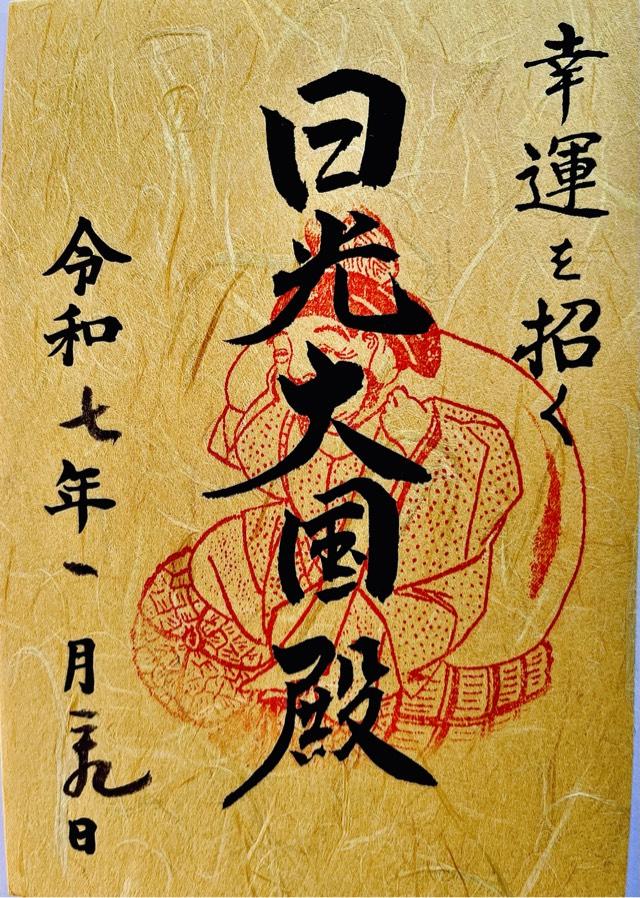 幸運を招く
日光大国殿
令和七年一月二十九日